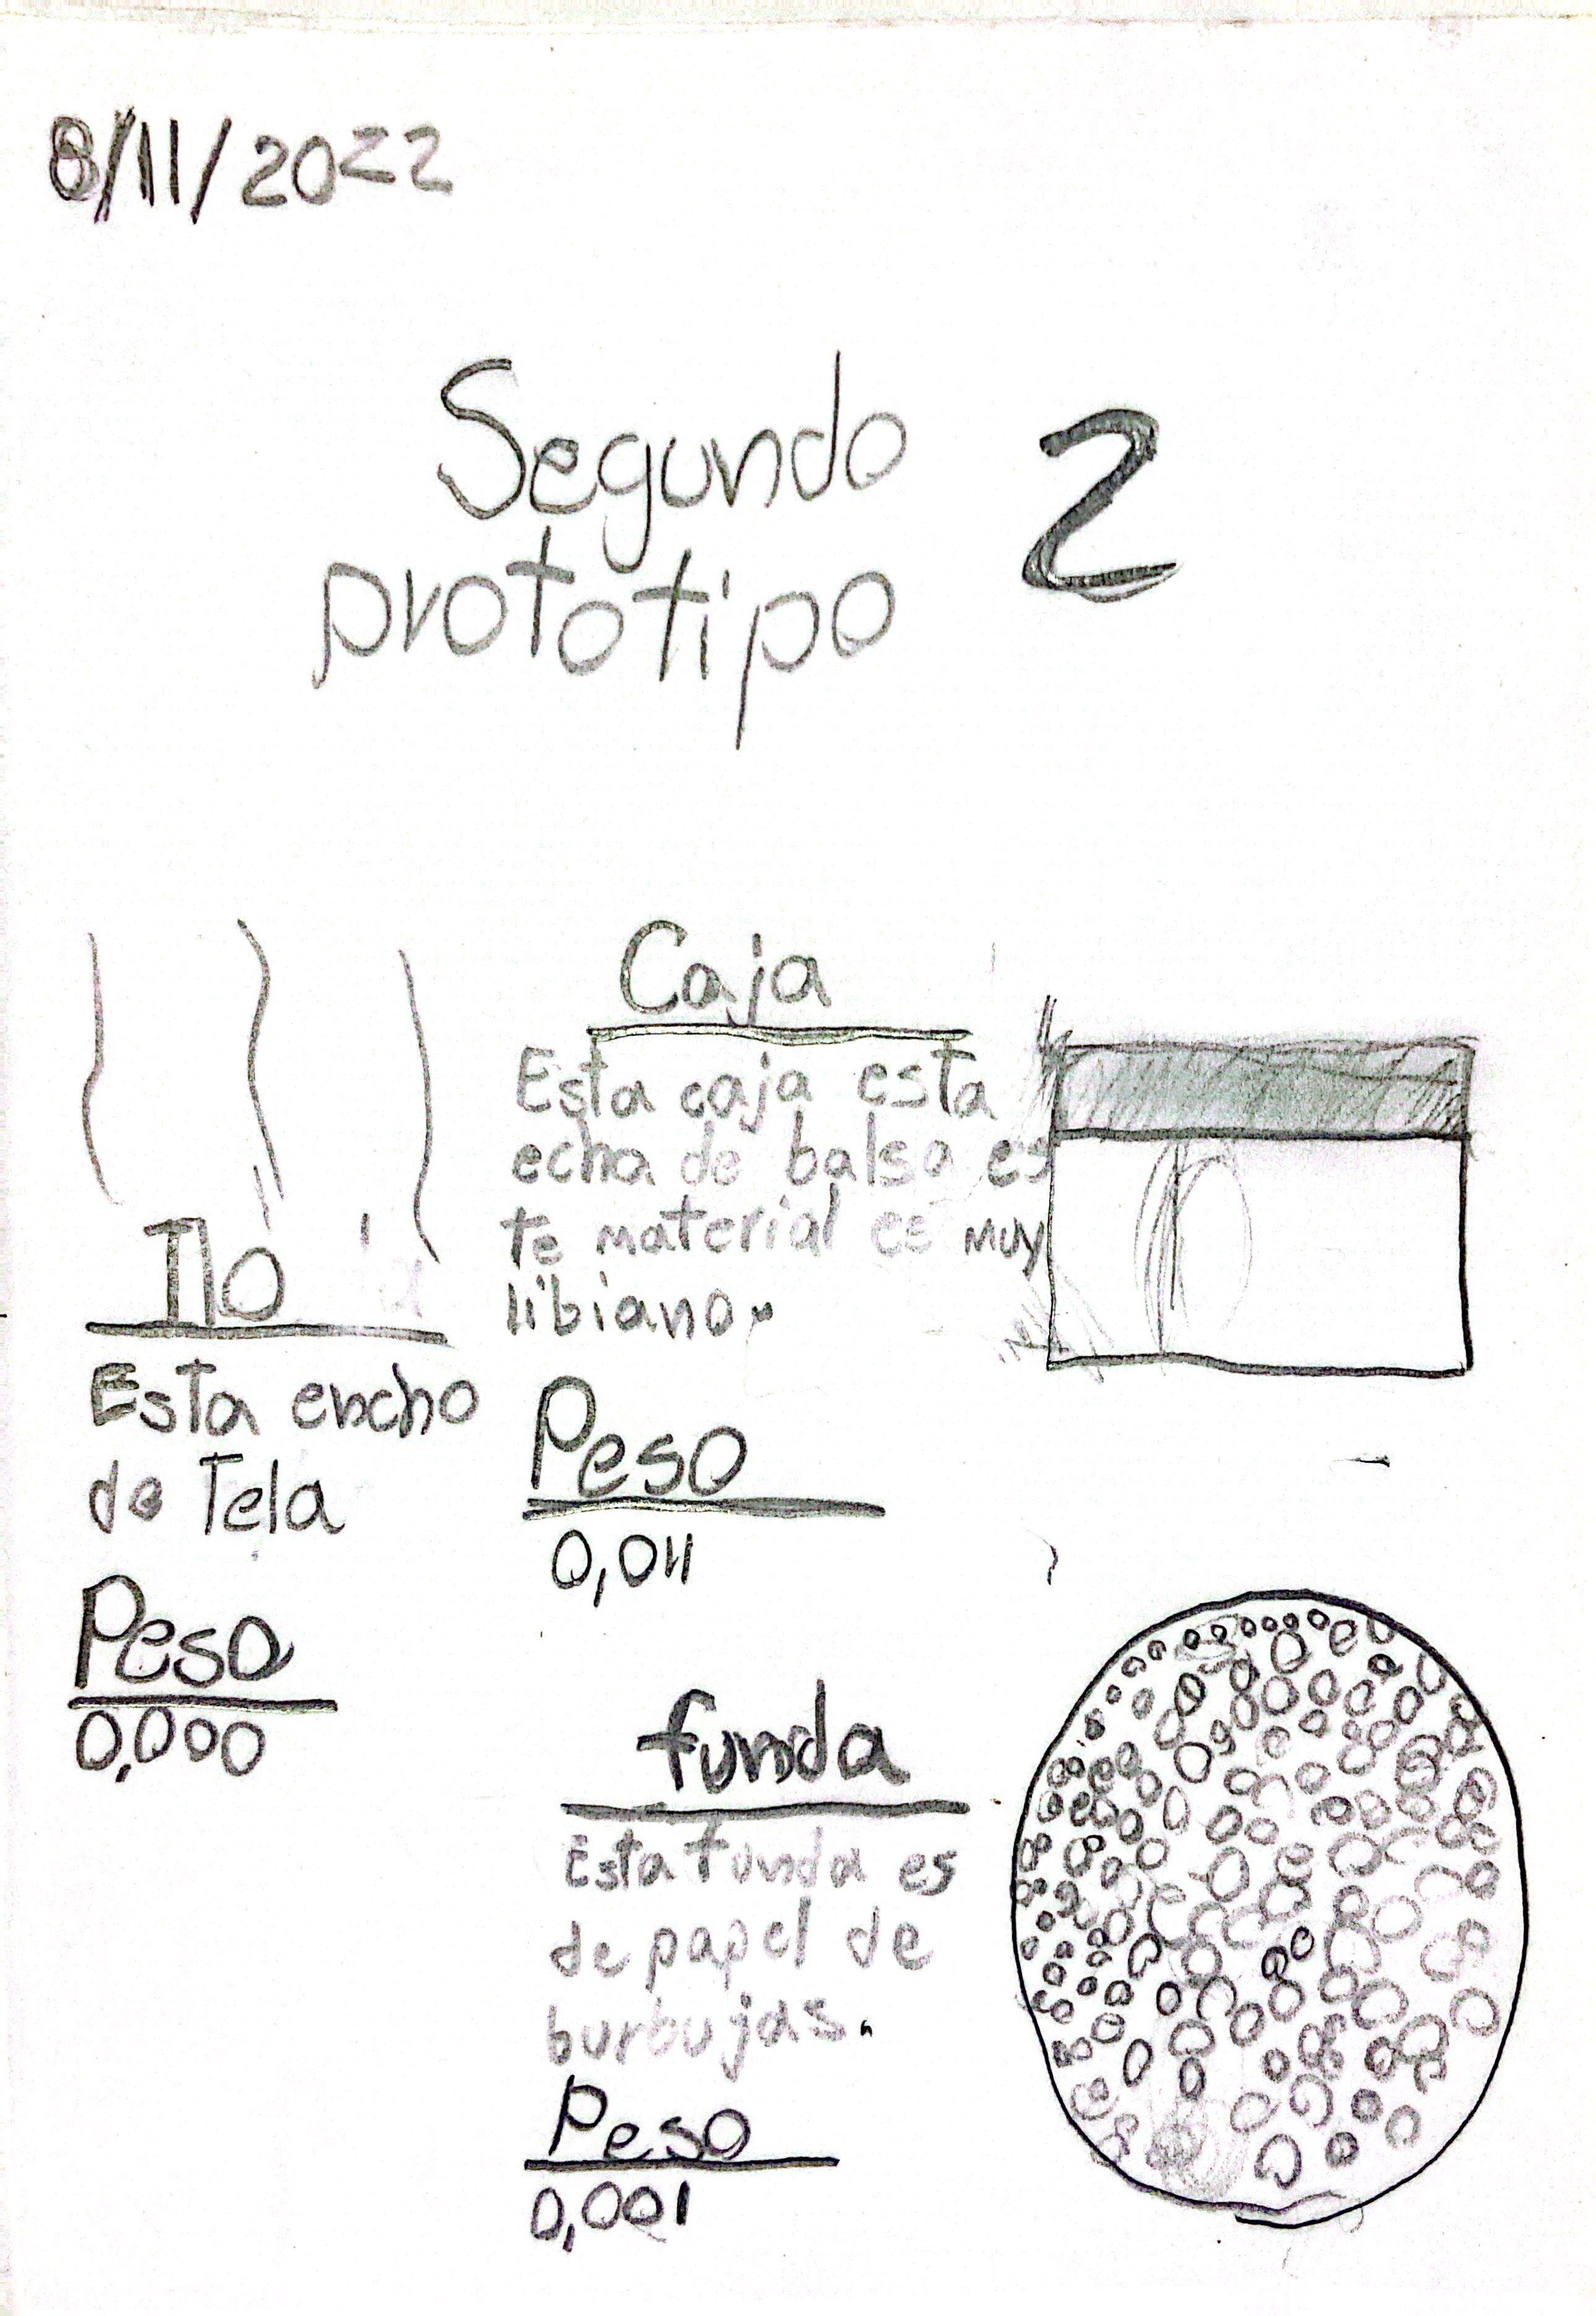 8/11/2022
Segundo 2
prototipo
Caja
Esta caja esta
echa de balsa es
te material es muy
libiano.
Peso
0,011
Ilo
Esta encho
de Tela
Peso
0,000
funda
Esta funda es
de papel de
burbujas.
Peso
0,001